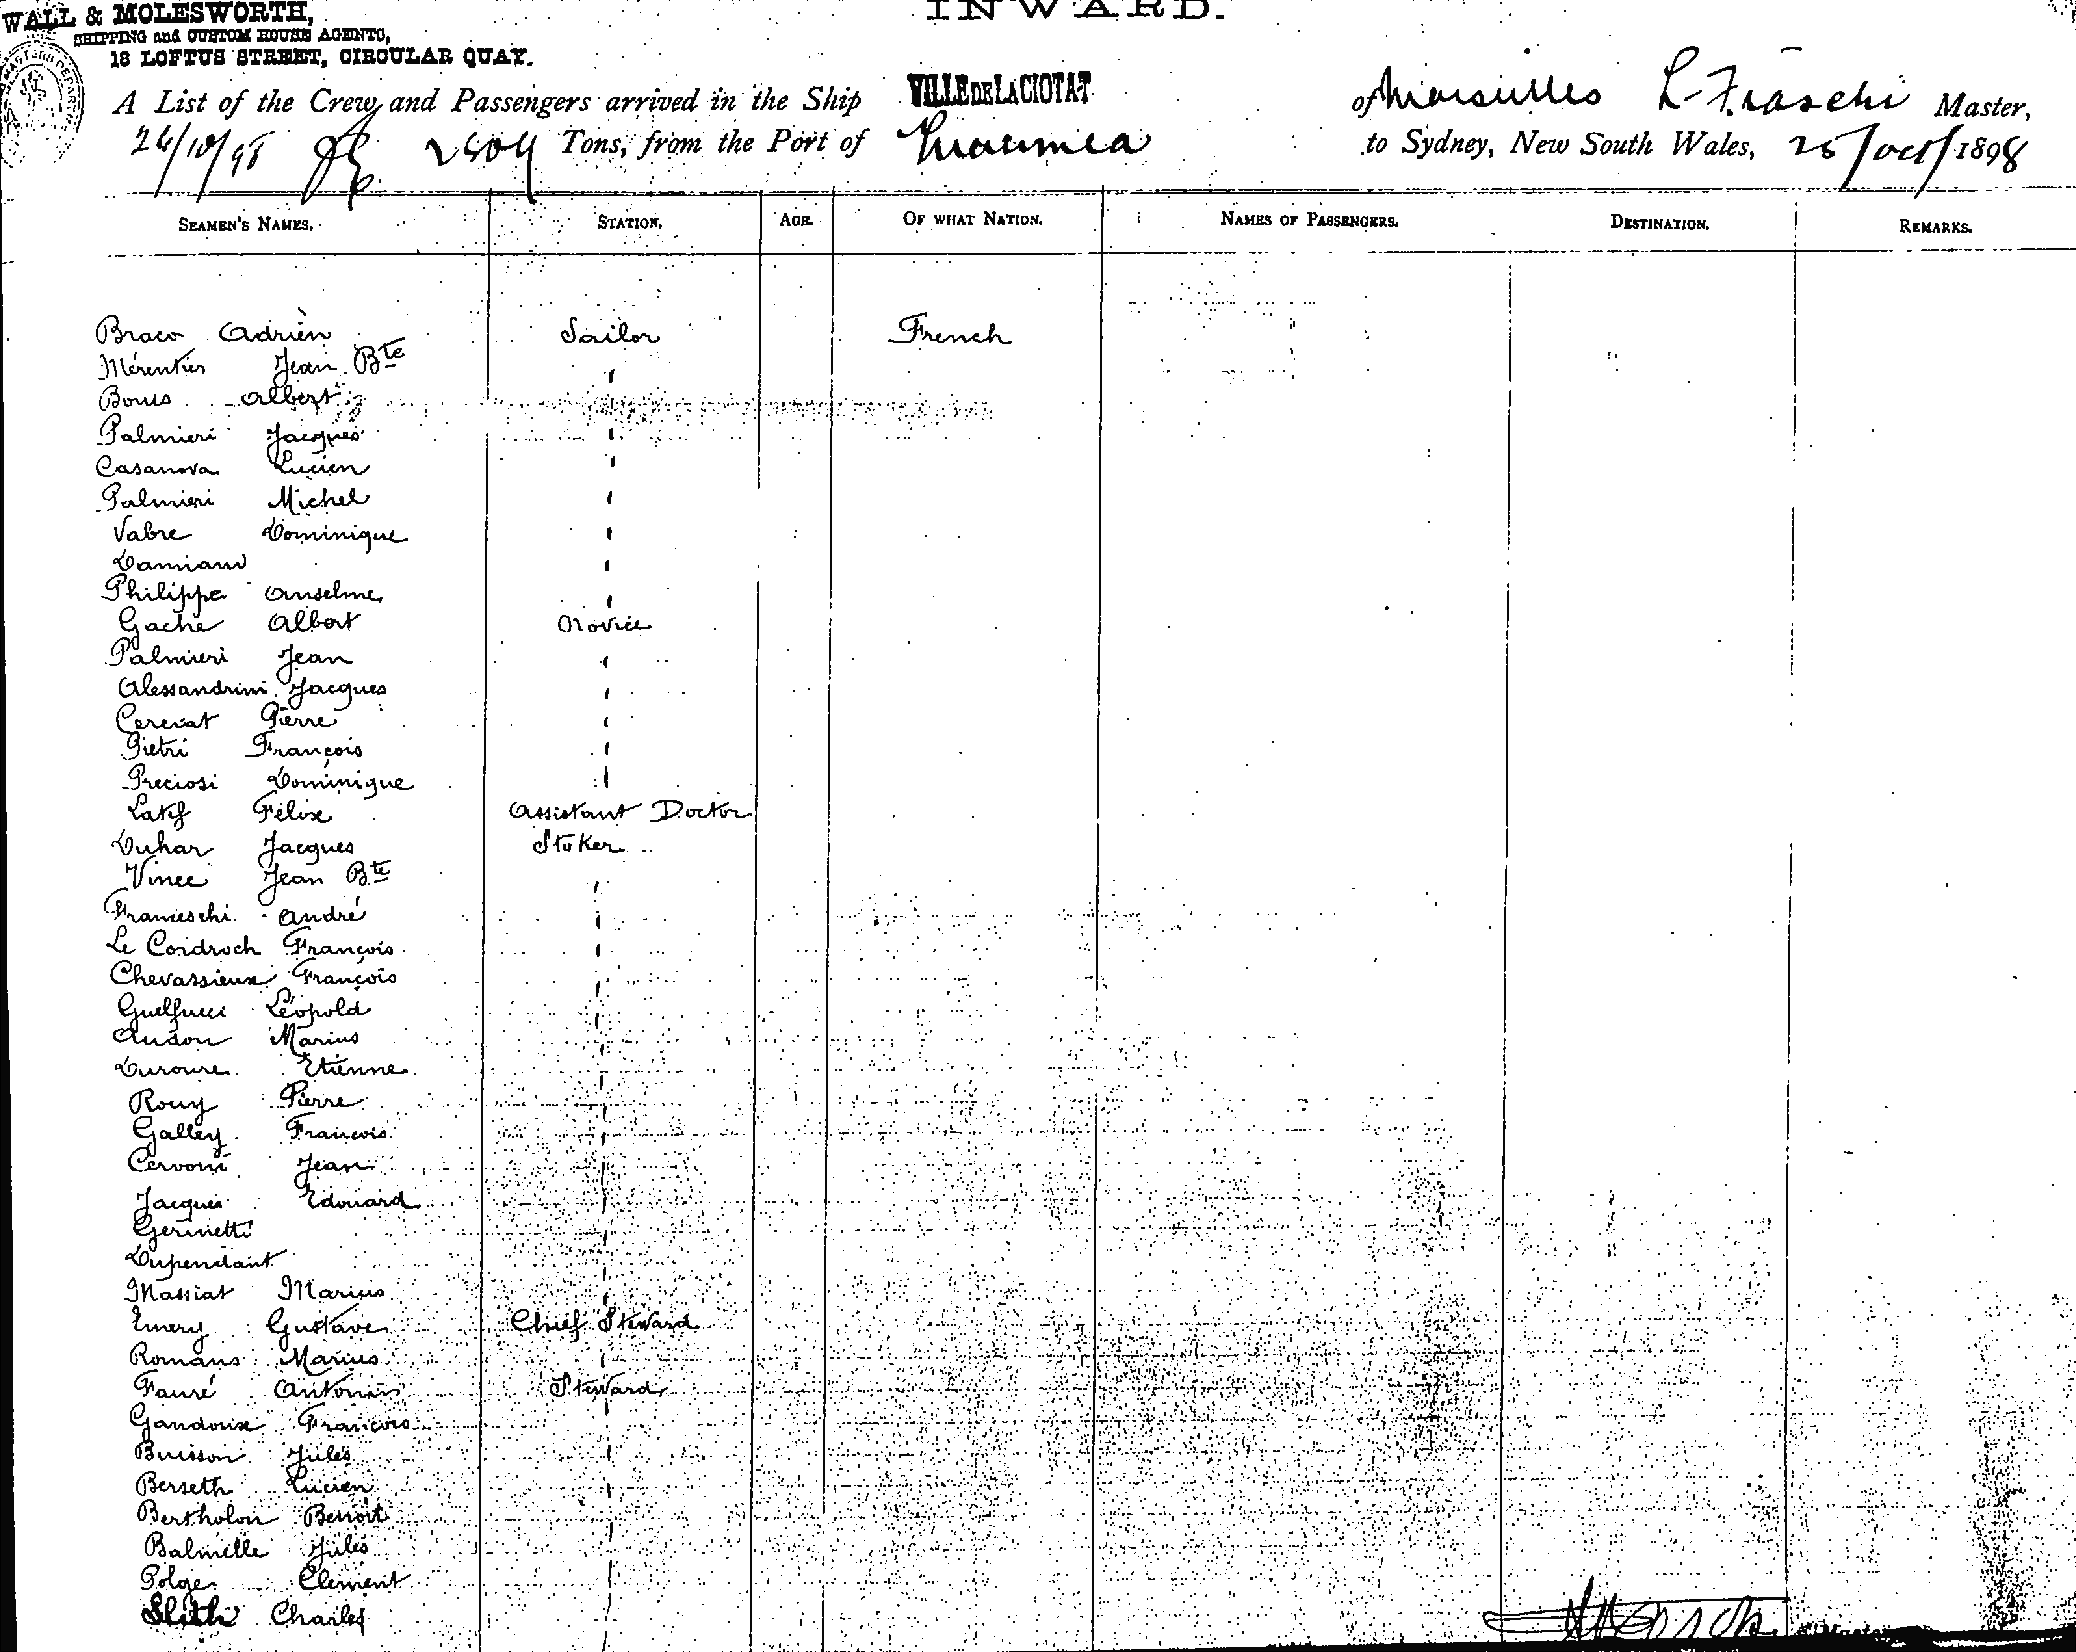 INWARD.
WALL & MOLESWORTH,
SHIPPING and CUSTOM HOUSE AGENTS,
18 LOFTUS STREET, CIRCULAR QUAY.
A List of the Crew and Passengers arrived in the Ship VILLE DE LA CIOTAT of Marseilles L. Fraschi Master,
26/10/98 2504 Tons, from the Port of Noumea to Sydney, New South Wales, 25/Oct/1898
SEAMEN'S NAMES. STATION. AGE. OF WHAT NATION. NAMES OF PASSENGERS. DESTINATION. REMARKS.
Braco Adrien Sailor French
Mérentier Jean Bte "
Bonis Albert "
Palmieri Jacques "
Casanova Lucien "
Palmieri Michel "
Vabre Dominique "
Damiano "
Philippe Anselme "
Gaché Albert Novice
Palmieri Jean "
Alessandrini Jacques "
Cerevat Pierre "
Pietri François "
Preciosi Dominique "
Latif Félix Assistant Doctor
Duhar Jacques Stoker
Vince Jean Bte "
Franceschi André "
Le Coidroch François "
Chevassieux François "
Guelfucci Léopold "
Audon Marius "
Duroure Etienne "
Rouy Pierre "
Galley François "
Cervoni Jean "
Jacques Edouard "
Gerinetti "
Dupendant "
Massiat Marius "
Emery Gustave Chief Steward
Romans Marius "
Fauré Antonin Steward
Gandoux François "
Buisson Jules "
Berseth Lucien "
Bertholon Benoit "
Balmelle Jules "
Polge Clement "
Charles "